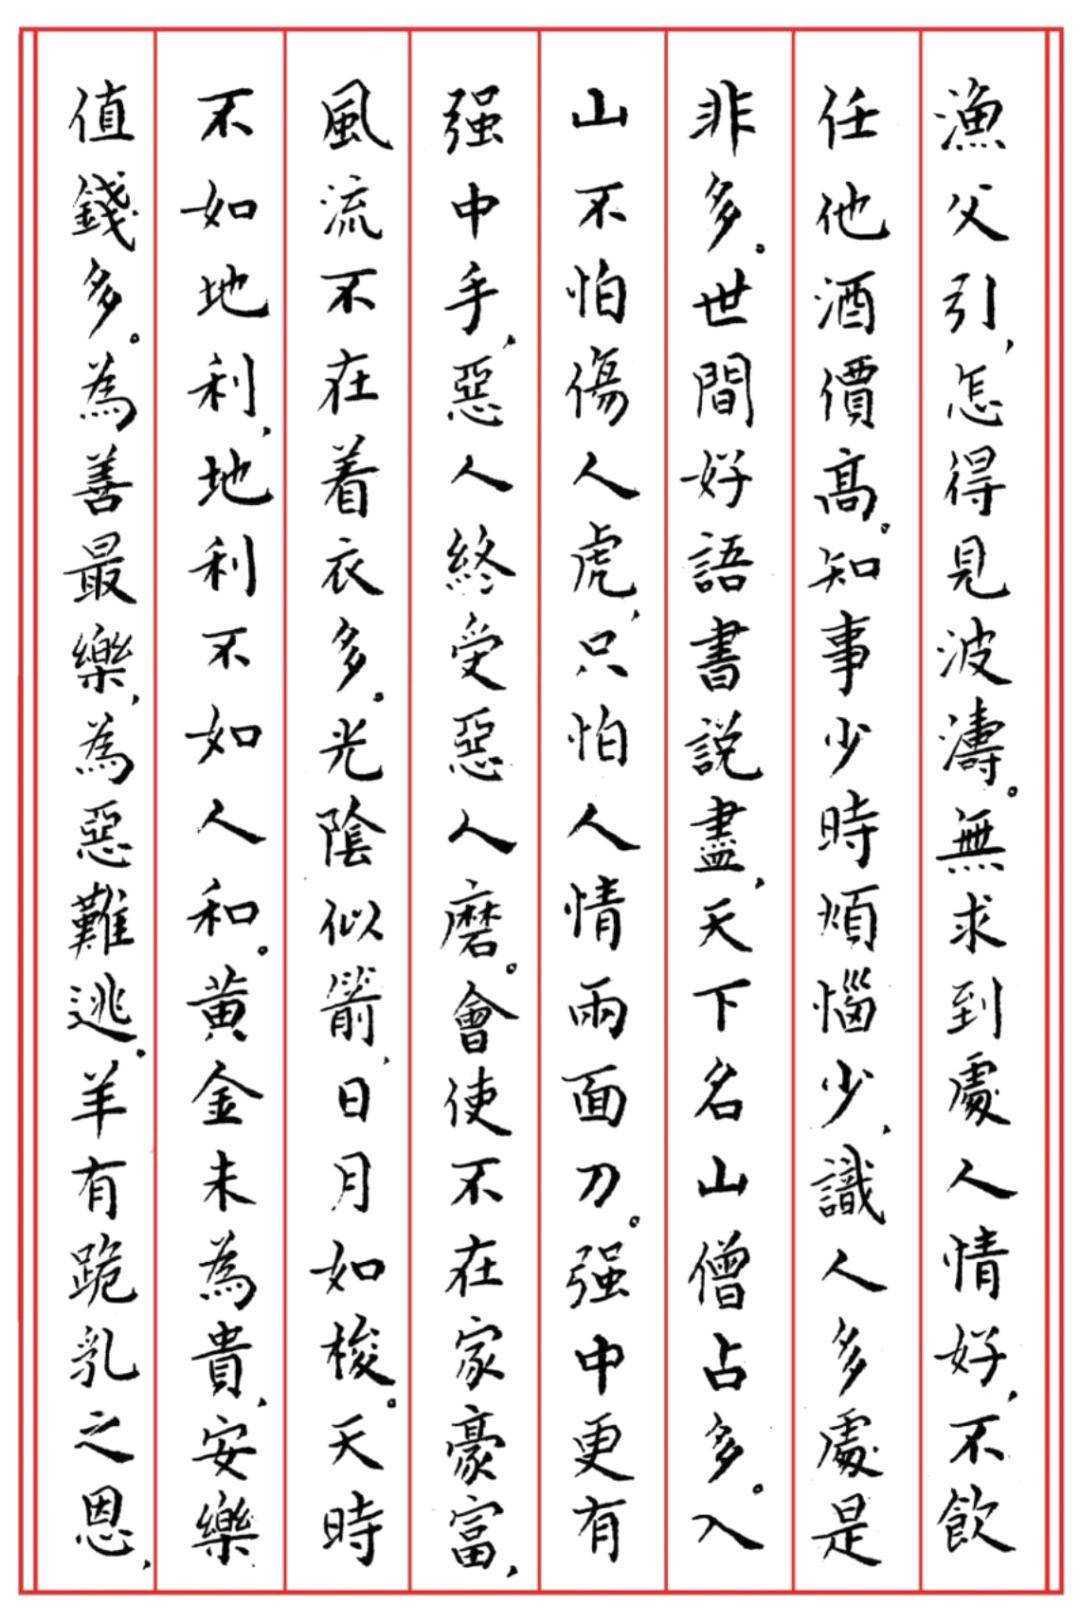 漁父引，怎得見波濤。無求到處人情好，不飲
任他酒價高。知事少時煩惱少，識人多處是
非多。世間好語書説盡，天下名山僧占多。入
山不怕傷人虎，只怕人情兩面刀。强中更有
强中手，惡人終受惡人磨。會使不在家豪富，
風流不在着衣多。光陰似箭，日月如梭。天時
不如地利，地利不如人和。黄金未為貴，安樂
值錢多。為善最樂，為惡難逃。羊有跪乳之恩，